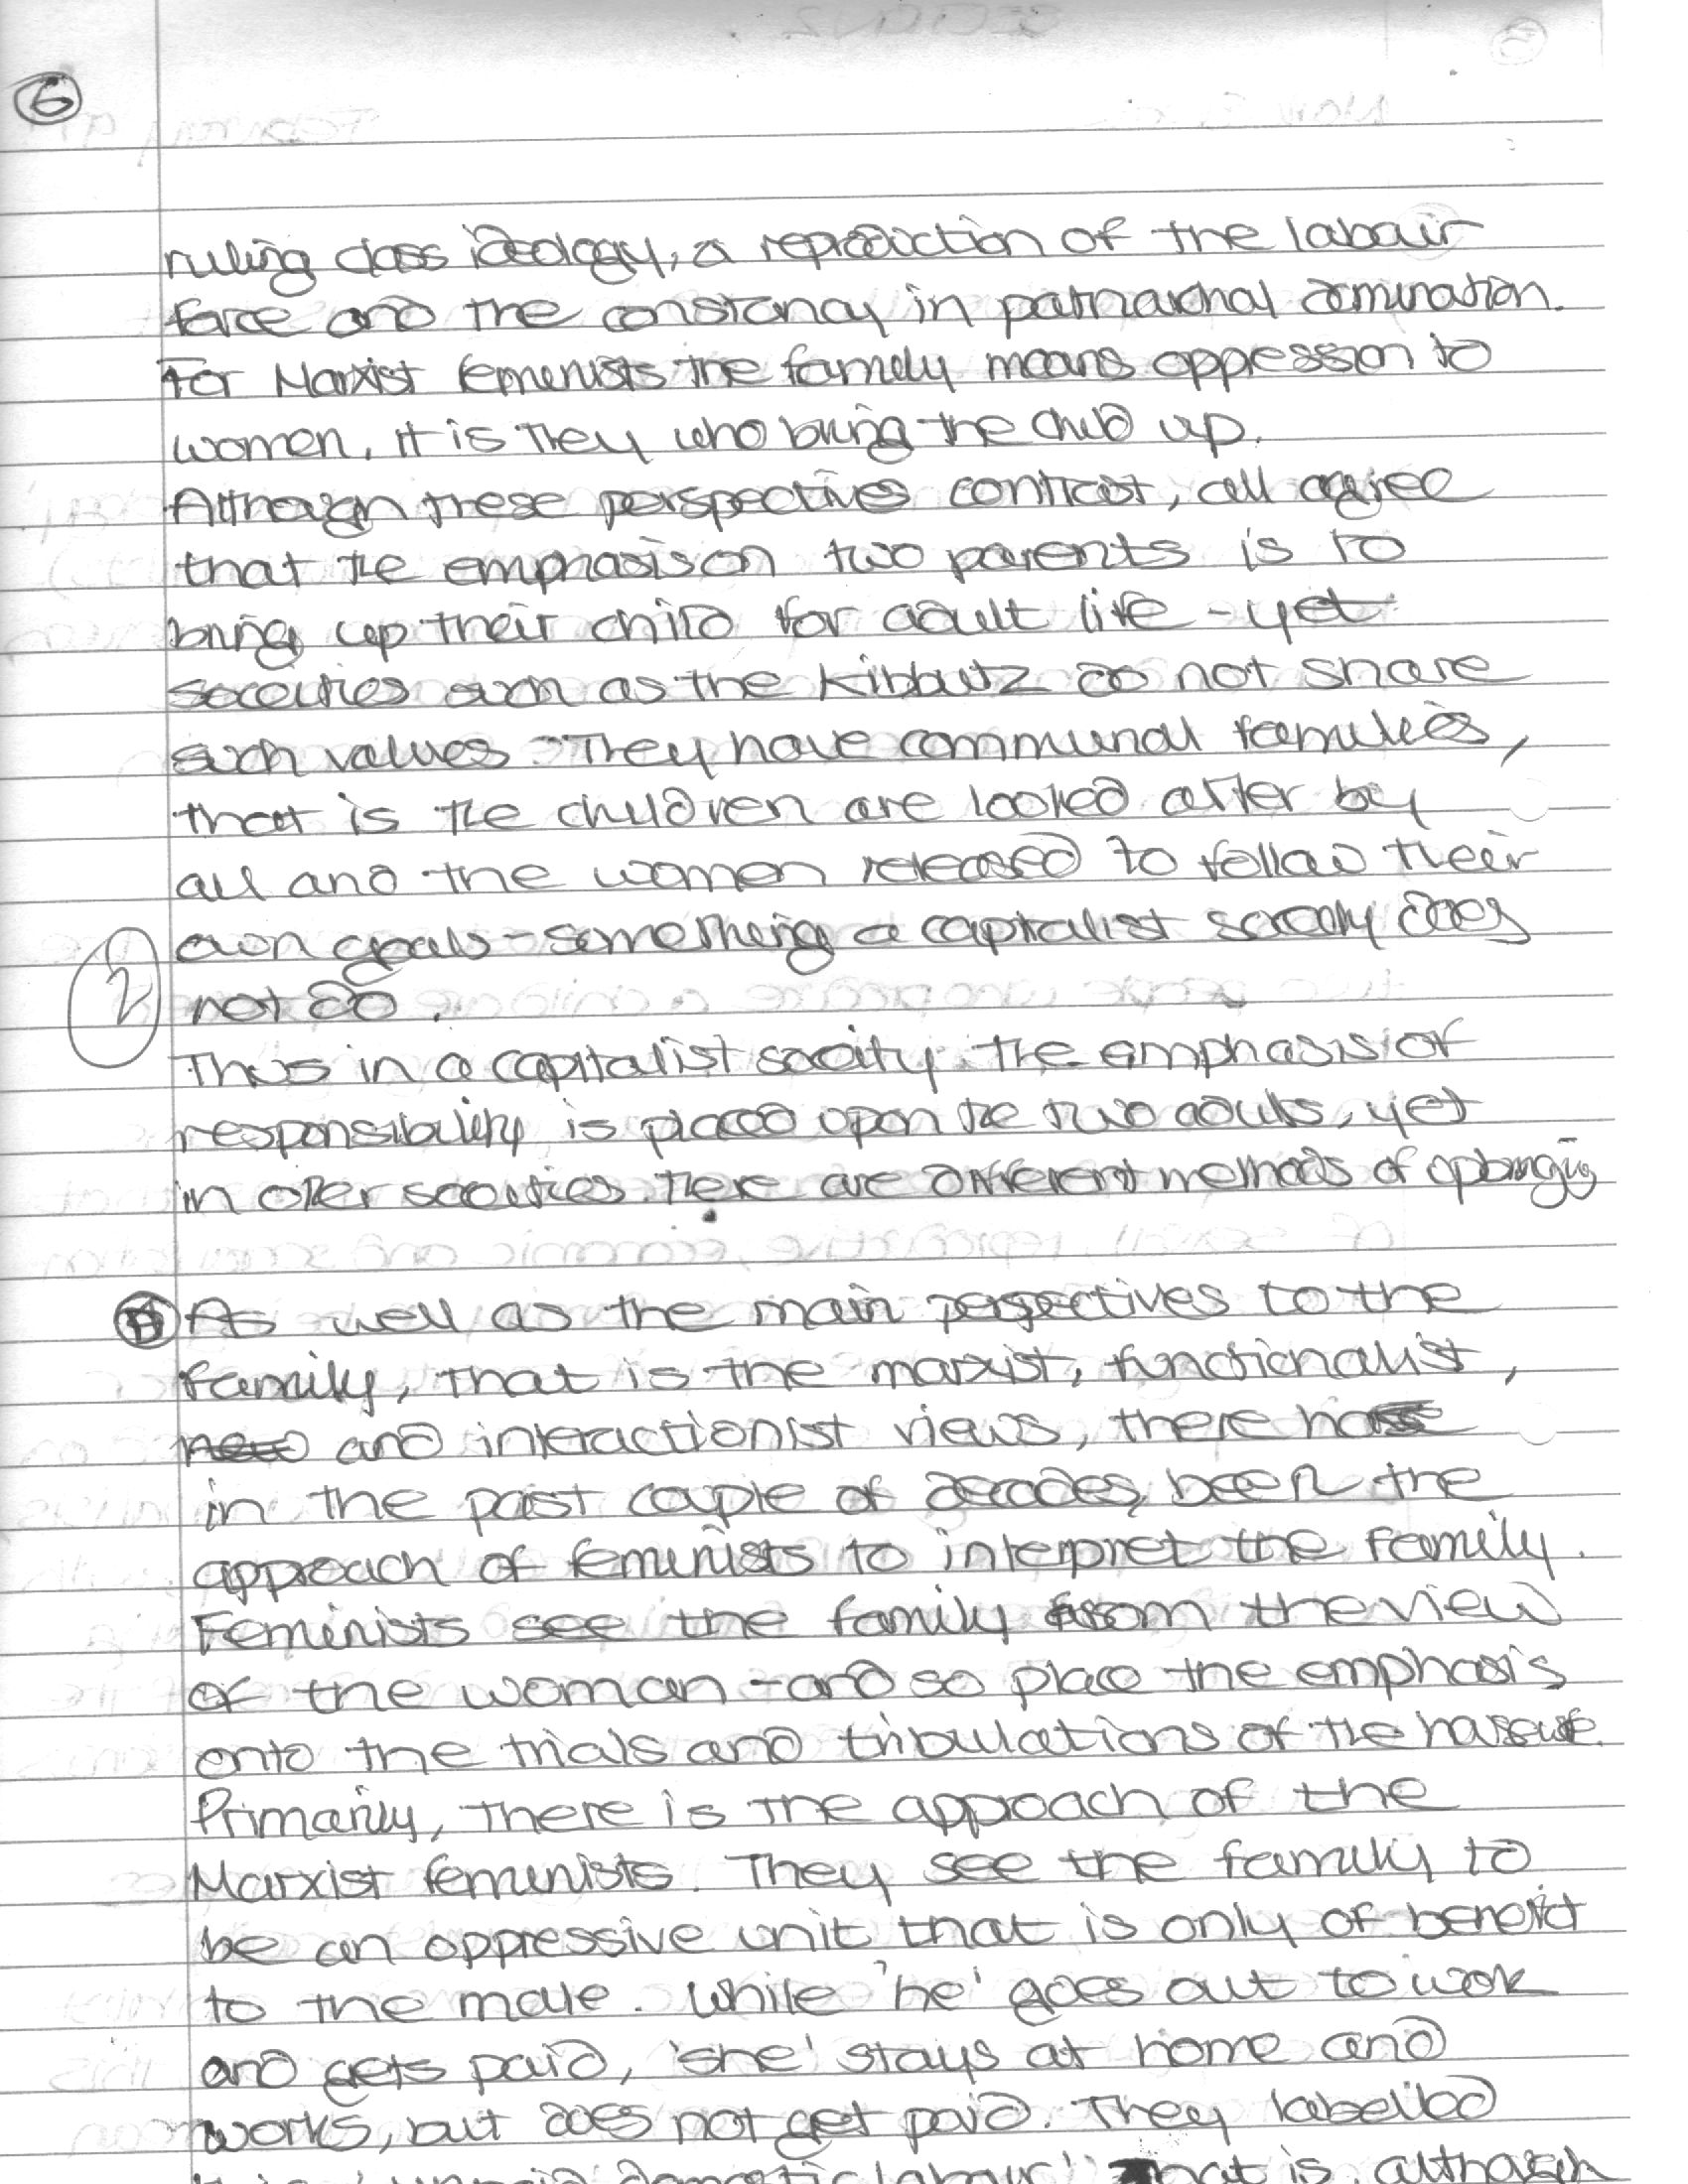 6
ruling class ideology, a reproduction of the labour
force and the constancy in patriarchal domination.
For Marxist femenists the family means oppression to
women, it is they who bring the child up.
Although these perspectives contrast, all agree
that the emphasis on two parents is to
bring up their child for adult life - yet
soceities such as the Kibbutz do not share
such values - They have communal families,
that is the children are looked after by
all and the women released to follow their
own goals - something a capitalist society does
2 not do.
Thus in a capitalist socity the emphasis of
responsibility is placed upon the two adults, yet
in other soceities there are different methods of upbringing
As well as the main perspectives to the
family, that is the marxist, functionalist,
and interactionist views, there has
in the past couple of decades, been the
approach of feminists to interpret the family.
Feminists see the family from the view
of the woman - and so place the emphasis
onto the trials and tribulations of the housewife.
Primarily, there is the approach of the
Marxist feminists. They see the family to
be an oppressive unit that is only of benefit
to the male. While 'he' goes out to work
and gets paid, 'she' stays at home and
works, but does not get paid. They labelled
'unpaid domestic labour' That is, although